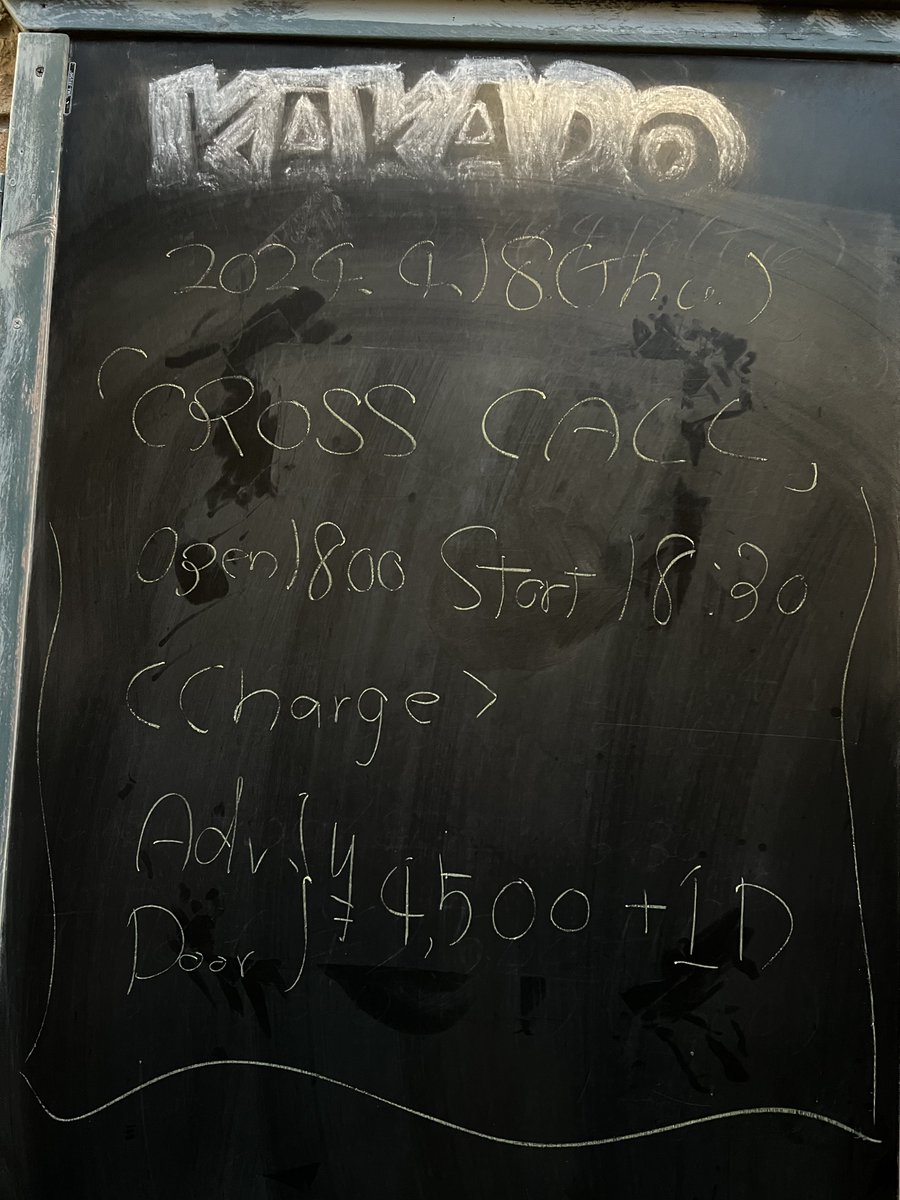 KAKADO
2024.4.18(Thu.)
「CROSS CALL」
Open 18:00 Start 18:30
<Charge>
Adv.
Door } ¥4,500 + 1D